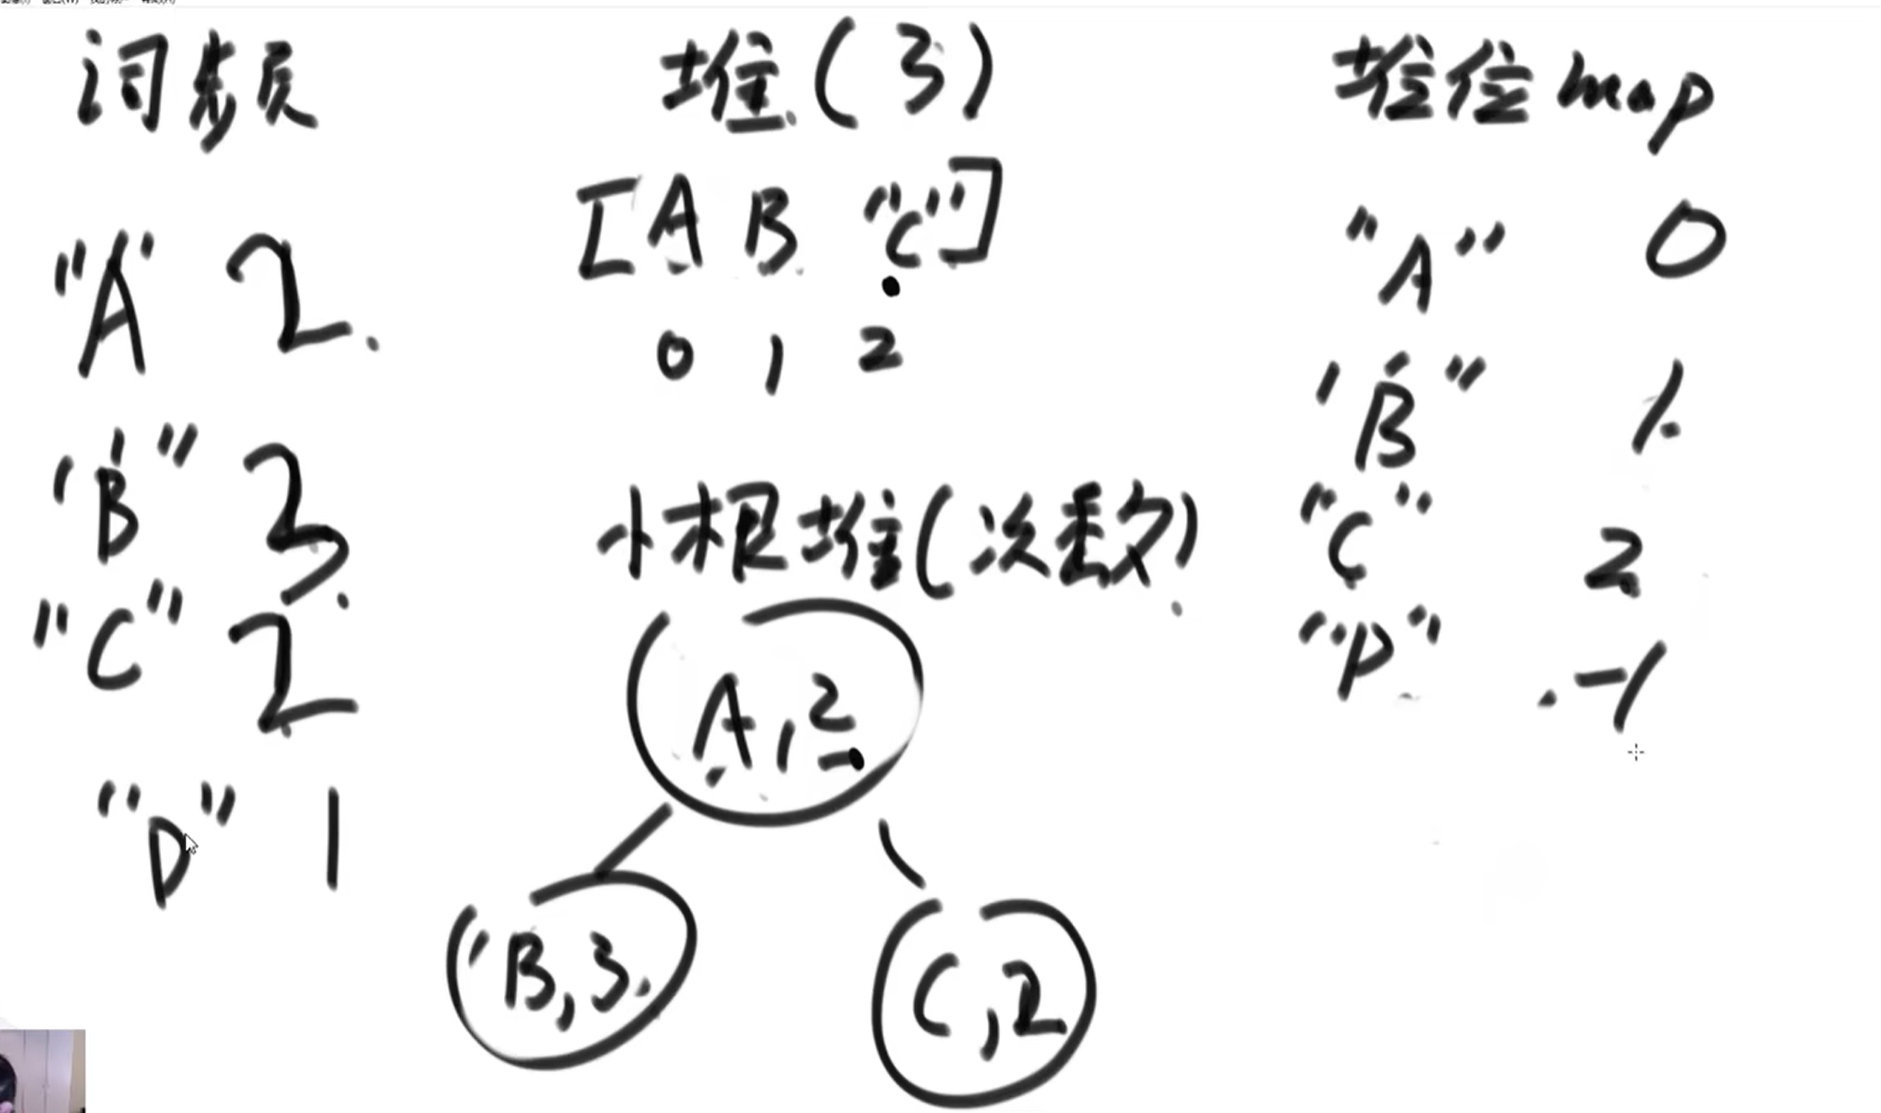 词频
"A" 2.
'B" 3.
"C" 2
"D" 1
堆(3)
[A B "C"]
0 1 2
小根堆(次数)
A,2
B,3.
C,2
堆位map
"A" 0
'B" 1
"C" 2
"D" -1